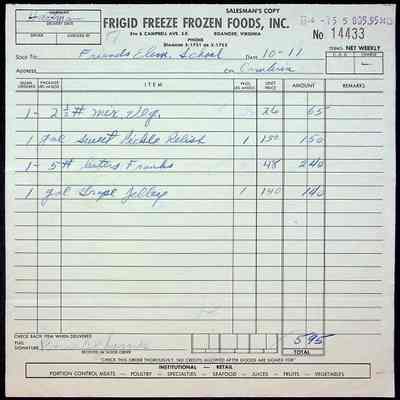 SALESMAN'S COPY
FRIGID FREEZE FROZEN FOODS, INC.
5TH & CAMPBELL AVE. S.E. ROANOKE, VIRGINIA
PHONE
DIAMOND 5-1751 OR 5-1752
No 14433
TERMS: NET WEEKLY
C.O.D. CHARGE
DRIVER CHECKED BY
SOLD TO Friends Elem. School DATE 10-11
ADDRESS
ITEM UNIT PRICE AMOUNT TOTAL
1- 2 1/2 # mix. Veg. 26 65
1- gal Sweet Pickle Relish 1 150 150
1- 5# Franks 48 240
1 gal Grape Jelley 1 140 140
CHECK EACH ITEM WHEN DELIVERED
595
SIGNATURE
RECEIVED IN GOOD ORDER
TOTAL
"CHECK THIS ORDER THOROUGHLY. NO CREDITS ALLOWED AFTER GOODS ARE SIGNED FOR"
INSTITUTIONAL — RETAIL
PORTION CONTROL MEATS — POULTRY — SPECIALTIES — SEAFOOD — JUICES — FRUITS — VEGETABLES